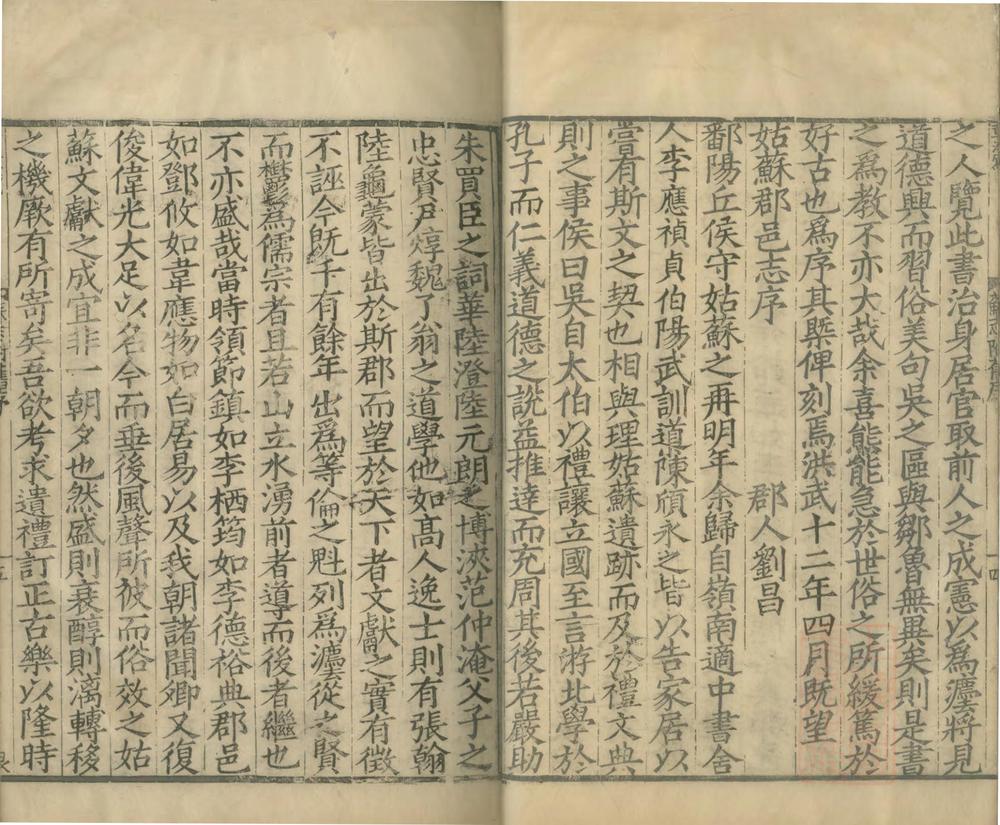 之人覽此書治身居官取前人之成憲以爲㢆將見
道德興而習俗美句吳之區與鄒魯無異矣則是書
之爲教不亦大哉余喜熊能急於世俗之所緩篤於
好古也爲序其槩俾刻焉洪武十二年四月既望
姑蘇郡邑志序　郡人劉昌
鄱陽丘侯守姑蘇之再明年余歸自嶺南適中書舍
人李應禎貞伯陽武訓導陳頎永之皆以告家居以
嘗有斯文之契也相與理姑蘇遺跡而及於禮文典
則之事侯曰吳自太伯以禮讓立國至言游北學於
孔子而仁義道德之說益推達而充周其後若嚴助
朱買臣之詞華陸澄陸元朗之博浹范仲淹父子之
忠賢尹焞魏了翁之道學他如高人逸士則有張翰
陸龜蒙皆出於斯郡而望於天下者文獻之實有徵
不誣今既千有餘年出爲等倫之魁列爲㢆從之賢
而欝爲儒宗者且若山立水湧前者導而後者繼也
不亦盛哉當時領節鎮如李栖筠如李德裕典郡邑
如鄧攸如韋應物如白居易以及我朝諸聞卿又復
俊偉光大足以名今而垂後風聲所彼而俗效之姑
蘇文獻之成宜非一朝夕也然盛則衰醇則漓轉移
之機厥有所寄矣吾欲考求遺禮訂正古樂以隆時